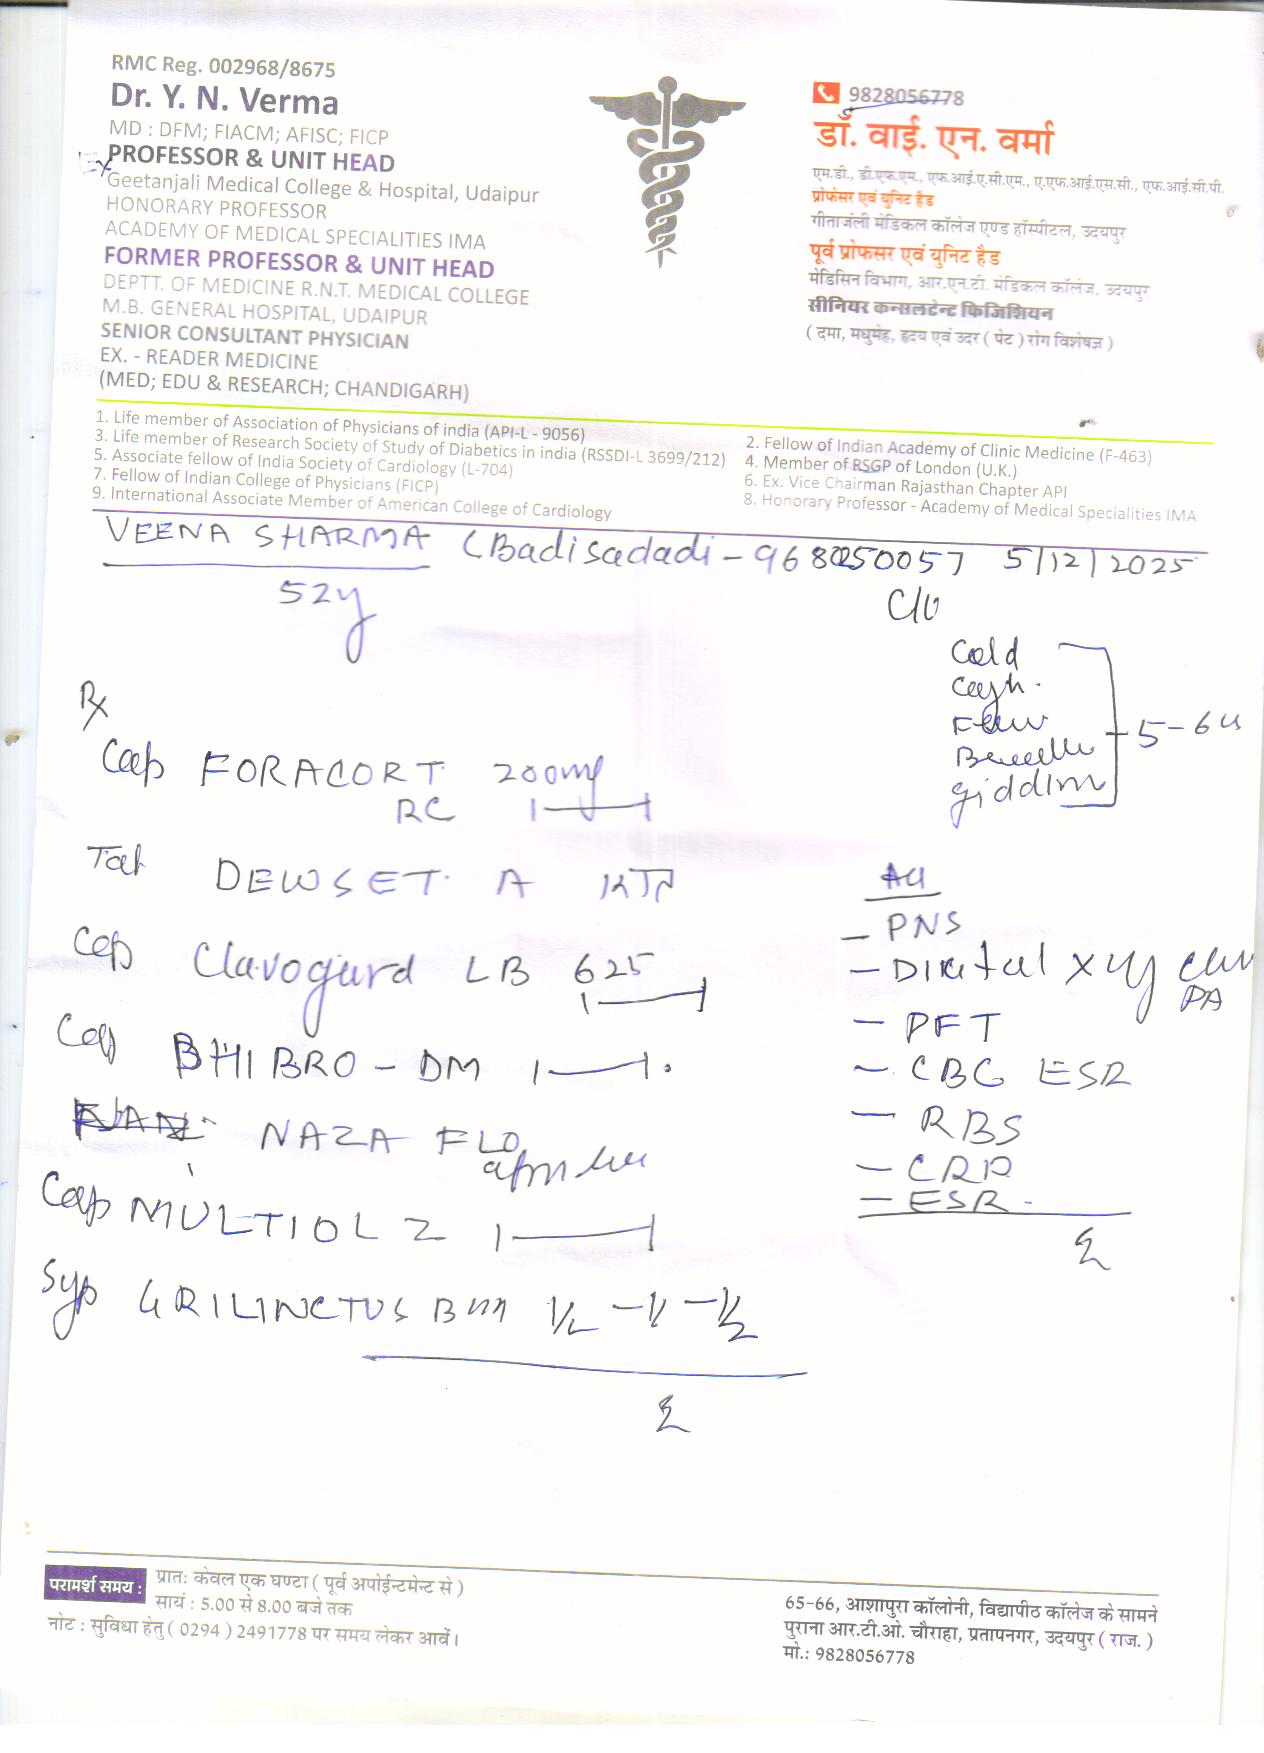 RMC Reg. 002968/8675
Dr. Y. N. Verma
MD : DFM; FIACM; AFISC; FICP
PROFESSOR & UNIT HEAD
Geetanjali Medical College & Hospital, Udaipur
HONORARY PROFESSOR
ACADEMY OF MEDICAL SPECIALITIES IMA
FORMER PROFESSOR & UNIT HEAD
DEPTT. OF MEDICINE R.N.T. MEDICAL COLLEGE
M.B. GENERAL HOSPITAL, UDAIPUR
SENIOR CONSULTANT PHYSICIAN
EX. - READER MEDICINE
(MED; EDU & RESEARCH; CHANDIGARH)
9828056778
डॉ. वाई. एन. वर्मा
एम.डी., डी.एफ.एम., एफ.आई.ए.सी.एम., ए.एफ.आई.एस.सी., एफ.आई.सी.पी.
प्रोफेसर एवं युनिट हैड
गीतांजली मेडिकल कॉलेज एण्ड हॉस्पीटल, उदयपुर
पूर्व प्रोफेसर एवं युनिट हैड
मेडिसिन विभाग, आर.एन.टी. मेडिकल कॉलेज, उदयपुर
सीनियर कन्सलटेन्ट फिजिशियन
( दमा, मधुमेह, हृदय एवं उदर ( पेट ) रोग विशेषज्ञ )
1. Life member of Association of Physicians of india (API-L - 9056)
2. Fellow of Indian Academy of Clinic Medicine (F-463)
3. Life member of Research Society of Study of Diabetics in india (RSSDI-L 3699/212)
4. Member of RSGP of London (U.K.)
5. Associate fellow of India Society of Cardiology (L-704)
6. Ex. Vice Chairman Rajasthan Chapter API
7. Fellow of Indian College of Physicians (FICP)
8. Honorary Professor - Academy of Medical Specialities IMA
9. International Associate Member of American College of Cardiology
VEENA SHARMA (Badisadadi - 5/12/2025
52y
C/O
Cold
Cough
Fever
giddin
5-6
Rx
Cap FORACORT 200mg
RC
Tab DEWSET. A
Cap Clavogurd LB 625
Cap BHIBRO - DM
NAZA FLO
Cap MULTIOL Z
Syp GRILINCTUS BM 1/2 - 1/2 - 1/2
- PNS
- Digital Xray
PA
- PFT
- CBC ESR
- RBS
- CRP
- ESR
परामर्श समय :
प्रातः केवल एक घण्टा ( पूर्व अपोईन्टमेन्ट से )
सायं : 5.00 से 8.00 बजे तक
नोट : सुविधा हेतु ( 0294 ) 2491778 पर समय लेकर आवें।
65-66, आशापुरा कॉलोनी, विद्यापीठ कॉलेज के सामने
पुराना आर.टी.ओ. चौराहा, प्रतापनगर, उदयपुर ( राज. )
मो.: 9828056778